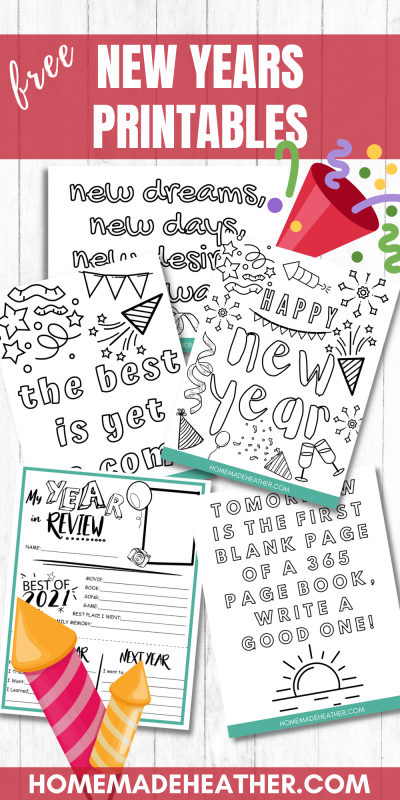 free
NEW YEARS
PRINTABLES
new dreams,
new days,
new
HOMEMADEHEATHER.COM
the best
is yet
HAPPY
new
year
HOMEMADEHEATHER.COM
My YEAR
in REVIEW
NAME:
BEST OF
2021
MOVIE:
BOOK:
SONG:
GAME:
BEST PLACE I WENT:
MEMORY:
NEXT YEAR
I want to
I Learned
TOMORROW
IS THE FIRST
BLANK PAGE
OF A 365
PAGE BOOK,
WRITE A
GOOD ONE!
HOMEMADEHEATHER.COM
HOMEMADEHEATHER.COM